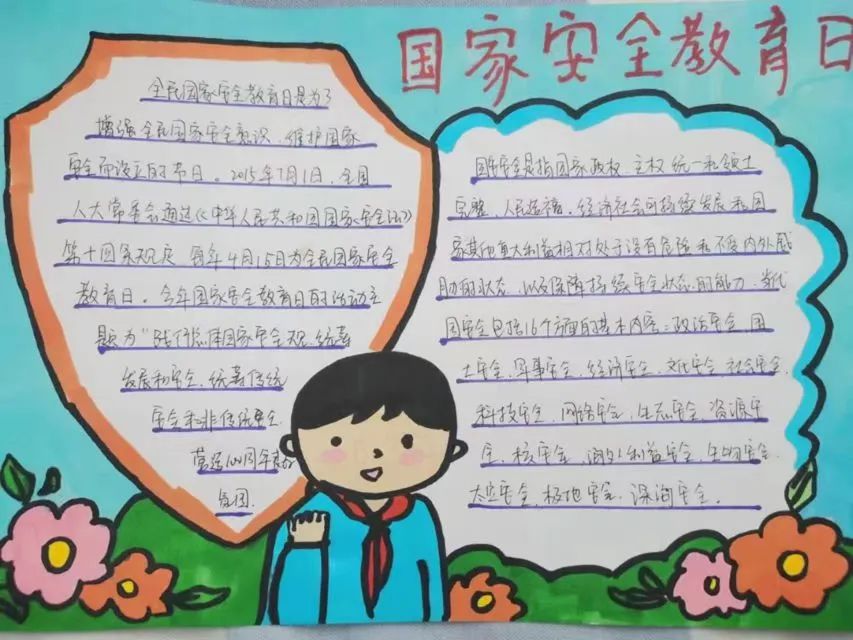 国家安全教育日
全民国家安全教育日是为了
增强全民国家安全意识，维护国家
安全而设立的节日。2015年7月1日，全国
人大常委会通过《中华人民共和国国家安全法》
第十四条规定 每年4月15日为全民国家安全
教育日。今年国家安全教育日的活动主
题为"践行总体国家安全观，统筹
发展和安全，统筹传统
安全和非传统安全，
营造100周年良好
氛围
国家安全是指国家政权、主权、统一和领土
完整、人民福祉、经济社会可持续发展和国
家其他重大利益相对处于没有危险和不受内外威
胁的状态，以及保障持续安全状态的能力，当代
国安全包括16个方面的基本内容：政治安全、国
土安全、军事安全、经济安全、文化安全、社会安全、
科技安全、网络安全、生态安全、资源安
全、核安全、海外利益安全、生物安全、
太空安全、极地安全、深海安全。